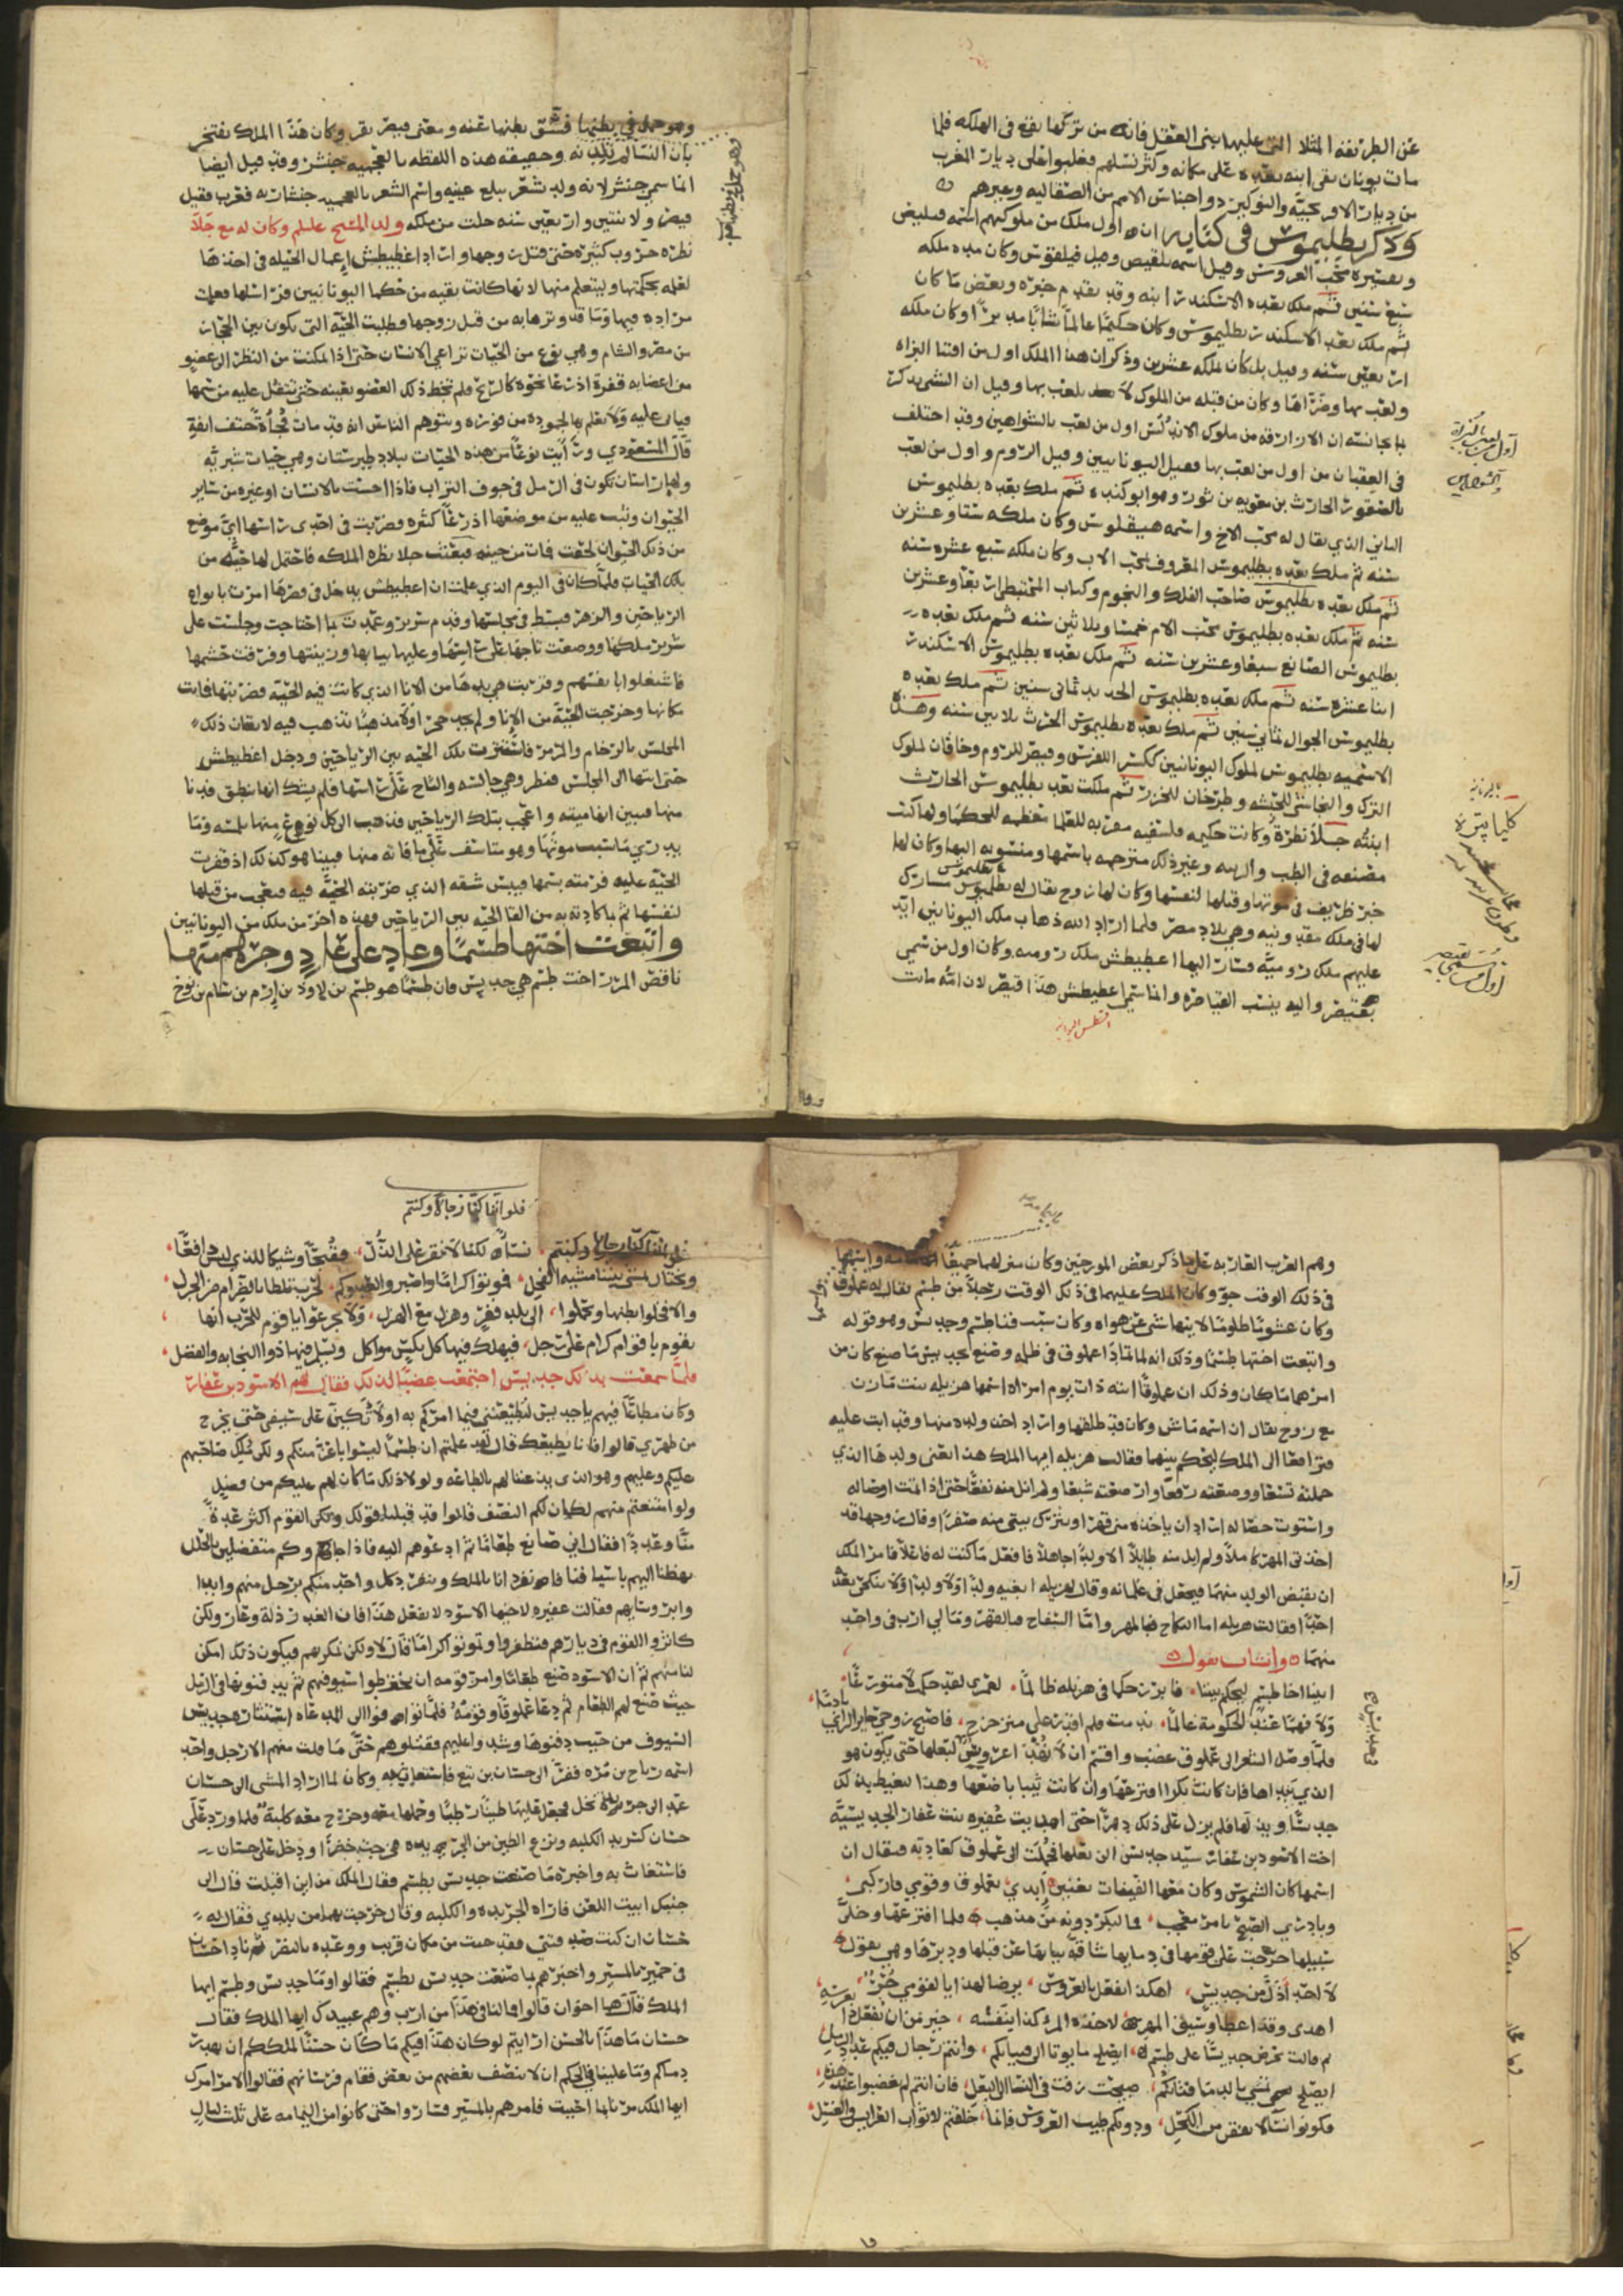 عن الطريقة المثلا التي عليها بني العقل فانه من تركها يقع في الهلكه فلما
مات يونان بقى ابنه بعده على مكانه وكثر نسلهم فغلبوا على ديار المغرب
من ديار الافرنجيه والنوكبرد واجناس الامم من الصقالبه وغيرهم
وذكر بطليموس في كتابه ان اول ملك من ملوكهم اسمه فيلبص
وتفسيره محب الفروس وقيل اسمه بلقيص وقيل فيلقوس وكان مده ملكه
سبع سنين ثم ملك بعده الاسكندر ابنه وقد تقدم خبره وبعض ما كان
ثم ملك بعد الاسكندر بطليموس وكان حكيما عالما شابا مدبرا وكان ملكه
اربعين سنه وقيل بل كان ملكه عشرين وذكر ان هذا الملك اول من اقتنا البزاه
ولعب بها وضراها وكان من قبله من الملوك لا يلعب بها
ان الازارقه من ملوك الاندلس اول من لعب بالشواهين وقد اختلف
في العقبان من اول من لعب بها فقيل اليونانيين وقيل الروم واول من لعب
بالصقور الحارث بن معويه بن ثور وهو ابو كنده ثم ملك بعده بطليموس
الثاني الذي يقال له محب الاخ واسمه هيفلوس وكان ملكه ستا وعشرين
سنه ثم ملك بعده بطليموس المعروف بمحب الاب وكان ملكه سبع عشره سنه
ثم ملك بعده بطليموس صاحب الفلك والنجوم وكتاب المجسطي اربعا وعشرين
سنه ثم ملك بعده بطليموس محب الام خمسا وثلاثين سنه ثم ملك بعده
بطليموس الصانع سبعا وعشرين سنه ثم ملك بعده بطليموس الاسكندر
اثنا عشره سنه ثم ملك بعده بطليموس الحديد ثماني سنين ثم ملك بعده
بطليموس الجوال ثماني سنين ثم ملك بعده بطليموس الحرث ثلاثين سنه وهذه
الاسميه بطليموس لملوك اليونانيين ككسرا للفرس وقيصر للروم وخاقان لملوك
الترك والنجاشي للحبشه وطرخان للخزر ثم ملكت بعد بطليموس الحارث
ابنته جلا نظرة وكانت حكيمه فلسفيه مقربه للعلما معظمه للحكما ولها كتب
مصنفه في الطب والرقيه وغير ذلك مترجمه باسمها ومنسوبه اليها وكان لها
خبر ظريف في موتها وقتلها لنفسها وكان لها زوج يقال له بطليموس مشارك
لها في ملك مقدونيه وهي بلاد مصر فلما اراد الله ذهاب ملك اليونانيين ايد
عليهم ملك روميه فسار اليها اغطيطش ملك روميه وكان اول من سمي
بقيصر واليه ينسب القياصره وانما سمي اغطيطش هذا قيصر لان امه ماتت
اول من لعب بالبزاة
والشواهين
باليونانيه
كليا پتره
اول من سمي بقيصر
وهو حمل في بطنها فشق بطنها عنه ومعنى قيصر بقر وكان هذا الملك يفتخر
بان النسا لم تلده وحقيقه هذه اللفظه بالعجميه جنشر وقد قيل ايضا
انما سمي جنشر لانه ولد بشعر يبلغ عينيه واسم الشعر بالعجميه جنشاره فعرب فقيل
قيصر ولاثنتين واربعين سنه خلت من ملكه ولد المسيح عليلم وكان له مع جلا
نظره حروب كثيرة حتى قتل زوجها واراد اغطيطش اعمال الحيله في اخذها
لعلمه بحكمتها وليتعلم منها لانها كانت بقيه من حكما اليونانيين فراسلها فعلمت
مراده فيها وما قد وترها به من قتل زوجها وطلبت الحيه التي تكون بين الحجاز
من مصر والشام وهي نوع من الحيات تراعي الانسان حتى اذا امكنت من النظر الى عضو
من اعضايه قفزة اذرعا نحوه كالريح فلم تخط ذلك العضو بعينه حتى تتفل عليه من سمها
فياتي عليه ولا يعلم بها لخموده من فوره ويتوهم الناس انه قد مات فجأة حتف انفه
قال المسعودي ورأيت نوعا من هذه الحيات ببلاد طبرستان وهي حيات شبريه
ولها راسان تكون في الرمل في جوف التراب فاذا احست بالانسان او غيره من ساير
الحيوان وثبت عليه من موضعها اذرعا كثيره وضربت في احدى راسيها اي موضع
من ذلك الحيوان لحقت فمات من حينه فبعثت جلا نظره الملكه فاحتمل لها حيه من
تلك الحيات فلما كان في اليوم الذي علمت ان اغطيطش يدخل في قصرها امرت بانواع
الرياحين والزهر فبسط في مجلسها وقدم سريرها وعمدت بما احتاجت وجلست على
سرير ملكها ووضعت تاجها على راسها وعليها ثيابها وزينتها وفرقت حشمها
فاشتغلوا بانفسهم وقربت يدها من الانا الذي كانت فيه الحيه فضربتها فماتت
مكانها وخرجت الحيه من الانا ولم تجد حجرا ولا مذهبا تذهب فيه لاتقان ذلك
المجلس بالرخام والمرمر فاستقرت تلك الحيه بين الرياحين ودخل اغطيطش
حتى انتها الى المجلس فنظر وهي جالسه والتاج على راسها فلم يشك انها تنطق فدنا
منها فتبين انها ميته واعجب بتلك الرياحين فمد يده الى كل نوع منها يلمسه وما
يدري ما سبب موتها وهو متاسف على ما فاته منها فبينا هو كذلك اذ قفزت
الحيه عليه فرمته بسمها فيبس شقه الذي ضربته الحيه فيه فعجب من قتلها
لنفسها ثم ما كادته به من القا الحيه بين الرياحين فهذه اخر من ملك من اليونانيين
واتبعت اختها طسما وعاد على عاد وجرهم منها
ناقض المرر اخت طسم هي جديس فان طسما هو طسم بن لاوذ بن ارم بن سام بن نوح
وهم العرب العاربه على ما ذكر بعض المورخين وكان منزلهما جميعا اليمامه واسمها
في ذلك الوقت جو وكان الملك عليهما في ذلك الوقت رجلا من طسم يقال له عملوق
وكان غشوما ظلوما لا ينهاه شي عن هواه وكان سبب فنا طسم وجديس وهو قوله
واتبعت اختها طسما وذلك انه لما تمادا عملوق في ظلمه وصنع بجديس ما صنع كان من
امرهما ما كان وذلك ان عملوقا اتته ذات يوم امراه اسمها هزيله بنت مازن
مع زوج يقال ان اسمه ماش وكان قد طلقها واراد اخذ ولده منها وقد ابت عليه
فترافعا الى الملك ليحكم بينهما فقالت هزيله ايها الملك هذا ابنى ولدها الذي
حملته تسعا ووضعته رفعا وارضعته شبعا ولم انل منه نفعا حتى اذا تمت اوصاله
واستوت خصاله اراد ان ياخذه مني قهرا ويترك بيتي منه صفرا وقال زوجها قد
اخذتي المهر كاملا ولم ابد منه طايلا الا ولدا جاهلا فافعل ما كنت له فاعلا فامر الملك
ان يقبض الولد منهما فيجعل في غلمانه وقال لهزيله ابغيه ولدا ولا تنكحي بعده
احدا فقالت هزيله اما النكاح فبالمهر واما السفاح فبالقهر ومالي ارب في واحد
منهما وانشات تقول
اتينا اخا طسم ليحكم بيننا فابرز حكما في هزيله ظالما لعمري لقد حكمت لا متورعا
ولا فهما عند الحكومة عالما ندمت فلم اقدر على متزحزح فاصبح زوجي حاير الراي نادما
فلما وصل الشعر الى عملوق غضب واقسم ان لا تهدا عروس لبعلها حتى يكون هو
الذي يبداها فان كانت بكرا افترعها وان كانت ثيبا باضعها وهذا لتغيظ بذلك
جديسا ويذلها فلم يزل على ذلك دهرا حتى اهديت عفيره بنت غفار الجديسيه
اخت الاسود بن غفار سيد جديس الى بعلها فحملت الى عملوق كعادته فيقال ان
اسمها كان الشموس وكان معها القينات يغنين ابدي بعملوق وقومي فاركبي
وبادري الصبح بامر معجب فما لبكر دونه من مذهب فلما افترعها وخلى
سبيلها خرجت على قومها في دمايها شاقة ثيابها عن قبلها ودبرها وهي تقول
لا احد اذل من جديس اهكذا يفعل بالعروس يرضا لهذا يا لقومي حر
اهدى وقد اعطا وسيق المهر لاخذة المرء كذا بنفسه خير من ان يفعل ذا بعرسه
ثم قالت تحرض جديسا على طسم ايصلح ما يوتا الى فتياتكم وانتم رجال فيكم عدد الرمل
ايصلح تمشي بالدما فتاتكم صبيحت زفت في النسا الى البعل فان انتم لم تغضبوا عند هذه
فكونوا نسآ لا تفق من الكحل ودونكم طيب العروس فانما خلقتم لاثواب العرايس والغسل
فلو اننا كنا رجالا وكنتم
نسآ لكنا لا نقر على الذل فقبحا وشيكا للذي ليس دافعا
ويختال يمشي بيننا مشيه الفحل فموتوا كراما واصبروا لعدوكم لحرب تلظا بالضرام من الجزل
والا فخلوا بطنها وتحملوا الى بلد قفر وهزل مع الهزل ولا تجزعوا يا قوم للحرب انها
تقوم باقوام كرام على رجل فيهلك فيها كل نكس مواكل ويسلم فيها ذوا النجابه والفضل
فلما سمعت بذلك جديس اجتمعت غضبا لذلك فقال لهم الاسود بن غفار
وكان مطاعا فيهم يا جديس لتطيعنني فيما امركم به او لاتكين على سيفي حتى يخرج
من ظهري قالوا فانا نطيعك قال لقد علمتم ان طسما ليسوا باعز منكم ولكن ملك صاحبهم
عليكم وعليهم وهو الذي يذعننا لهم بالطاعه ولولا ذلك ما كان لهم عليكم من فضل
ولو امتنعتم منهم لكان لكم النصف قالوا قد قبلنا قولك ولكن القوم اكثر عددا
منا وعددا فقال اني صانع طعاما ثم ادعوهم اليه فاذا جاوكم متفضلين بالحلل
نهضنا اليهم باسيافنا فانفرد انا بالملك وينفرد كل واحد منكم برجل منهم
فقالت عفيره لاخيها الاسود لا تفعل هذا فان الغدر ذلة وعار ولكن
كاثروا القوم في ديارهم فتظفروا او تموتوا كراما قال لا ولكن نمكر بهم فيكون ذلك امكن
لنا منهم ثم ان الاسود صنع طعاما وامر قومه ان يخترطوا سيوفهم ثم يدفنوها في الرمل
حيث صنع لهم الطعام ثم دعا عملوقا وقومه فلما توافوا الى المدعاه استثارت جديس
السيوف من حيث دفنوها وشدوا عليهم وقتلوهم حتى ما فلت منهم الا رجل واحد
اسمه رياح بن مره ففر الى حسان بن تبع فاستغاث به وكان لما اراد المشي الى حسان
عمد الى جريدة نخل فجعل عليها طينا رطبا وحملها معه وخرج معه كلبة فلما ورد على
حسان كسر يد الكلبه ونزع الطين من الجريده فخرجت خضرا ودخل على حسان
فاستغاث به واخبره ما صنعت جديس بطسم فقال الملك من اين اقبلت قال الى
جيتك ابيت اللعن فاراه الجريده والكلبه وقال خرجت بهما من بلدي فقال له
حسان ان كنت صدقتني فقد جيت من مكان قريب ووعده بالنصر ثم نادا حسان
في حمير بالمسير واخبرهم بما صنعت جديس بطسم فقالوا وما جديس وطسم ايها
الملك قال هما اخوان قالوا فما لنا في هذا من ارب وهم عبيدك ايها الملك فقال
حسان ما هذا بالحسن ارايتم لو كان هذا فيكم ما كان حسنا لملككم ان يهدر
دماكم وما علينا في الحكم ان لا ينصف بعضهم من بعض فقام فرسانهم فقالوا الامر امرك
ايها الملك مرنا بما احببت فامرهم بالمسير فساروا حتى كانوا من اليمامه على ثلث ليال